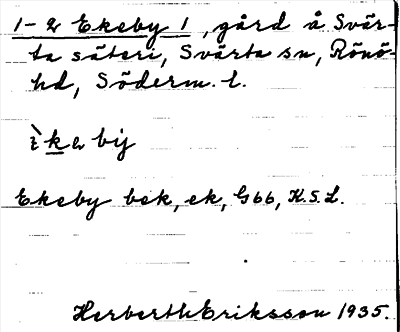 1-2 Ekeby 1, gård å Svär-
ta säteri, Svärta sn, Rönö-
hd, Söderm. l.
ìkabÿ
Ekeby bek, ek, G66, K.S.L.
Herberth Eriksson 1935.